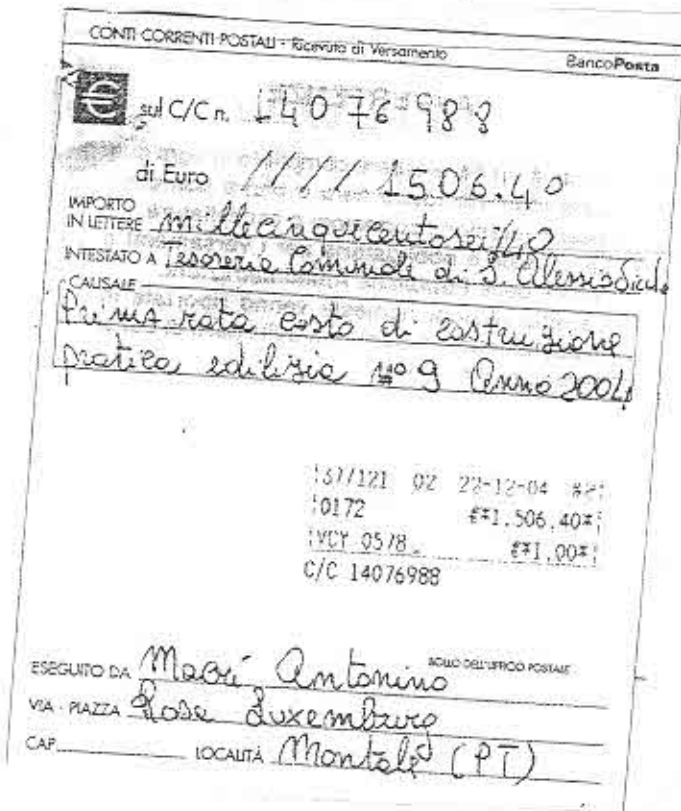 CONTI CORRENTI POSTALI - Ricevuta di Versamento BancoPosta
€ sul C/C n. 14076988
di Euro //// 1506.40
IMPORTO
IN LETTERE millecinquecentosei/40
INTESTATO A Tesoreria Comunale di S. Alessio Siculo
CAUSALE
Prima rata costo di costruzione
pratica edilizia nº 9 Anno 2004
37/121 02 22-12-04
0172 €*1.506,40*
VCY 0578 €*1,00*
C/C 14076988
BOLLO DELL'UFFICIO POSTALE
ESEGUITO DA Macrì Antonino
VIA - PIAZZA Rosa Luxemburg
CAP LOCALITÀ Montale (PT)